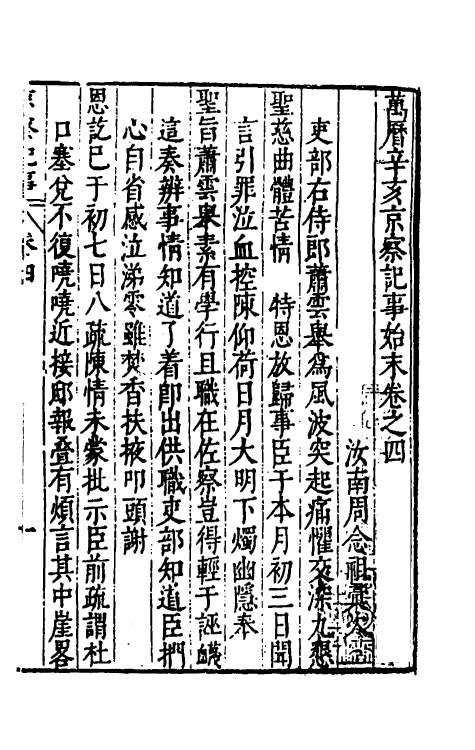 萬曆辛亥京察記事始末卷之四
汝南周念祖
吏部右侍郎蕭雲舉爲風波突起痛懼交深九懇
聖慈曲體苦情 特恩放歸事臣于本月初三日聞
言引罪泣血控陳仰荷日月大明下燭幽隱奉
聖旨蕭雲舉素有學行且職在佐察豈得輕于誣衊
這奏辨事情知道了着卽出供職吏部知道臣捫
心自省感泣涕零雖焚香扶掖叩頭謝
恩訖巳于初七日八疏陳情未蒙批示臣前疏謂杜
口塞兌不復嘵嘵近接邸報疊有煩言其中崖畧
京察記事 卷四 一